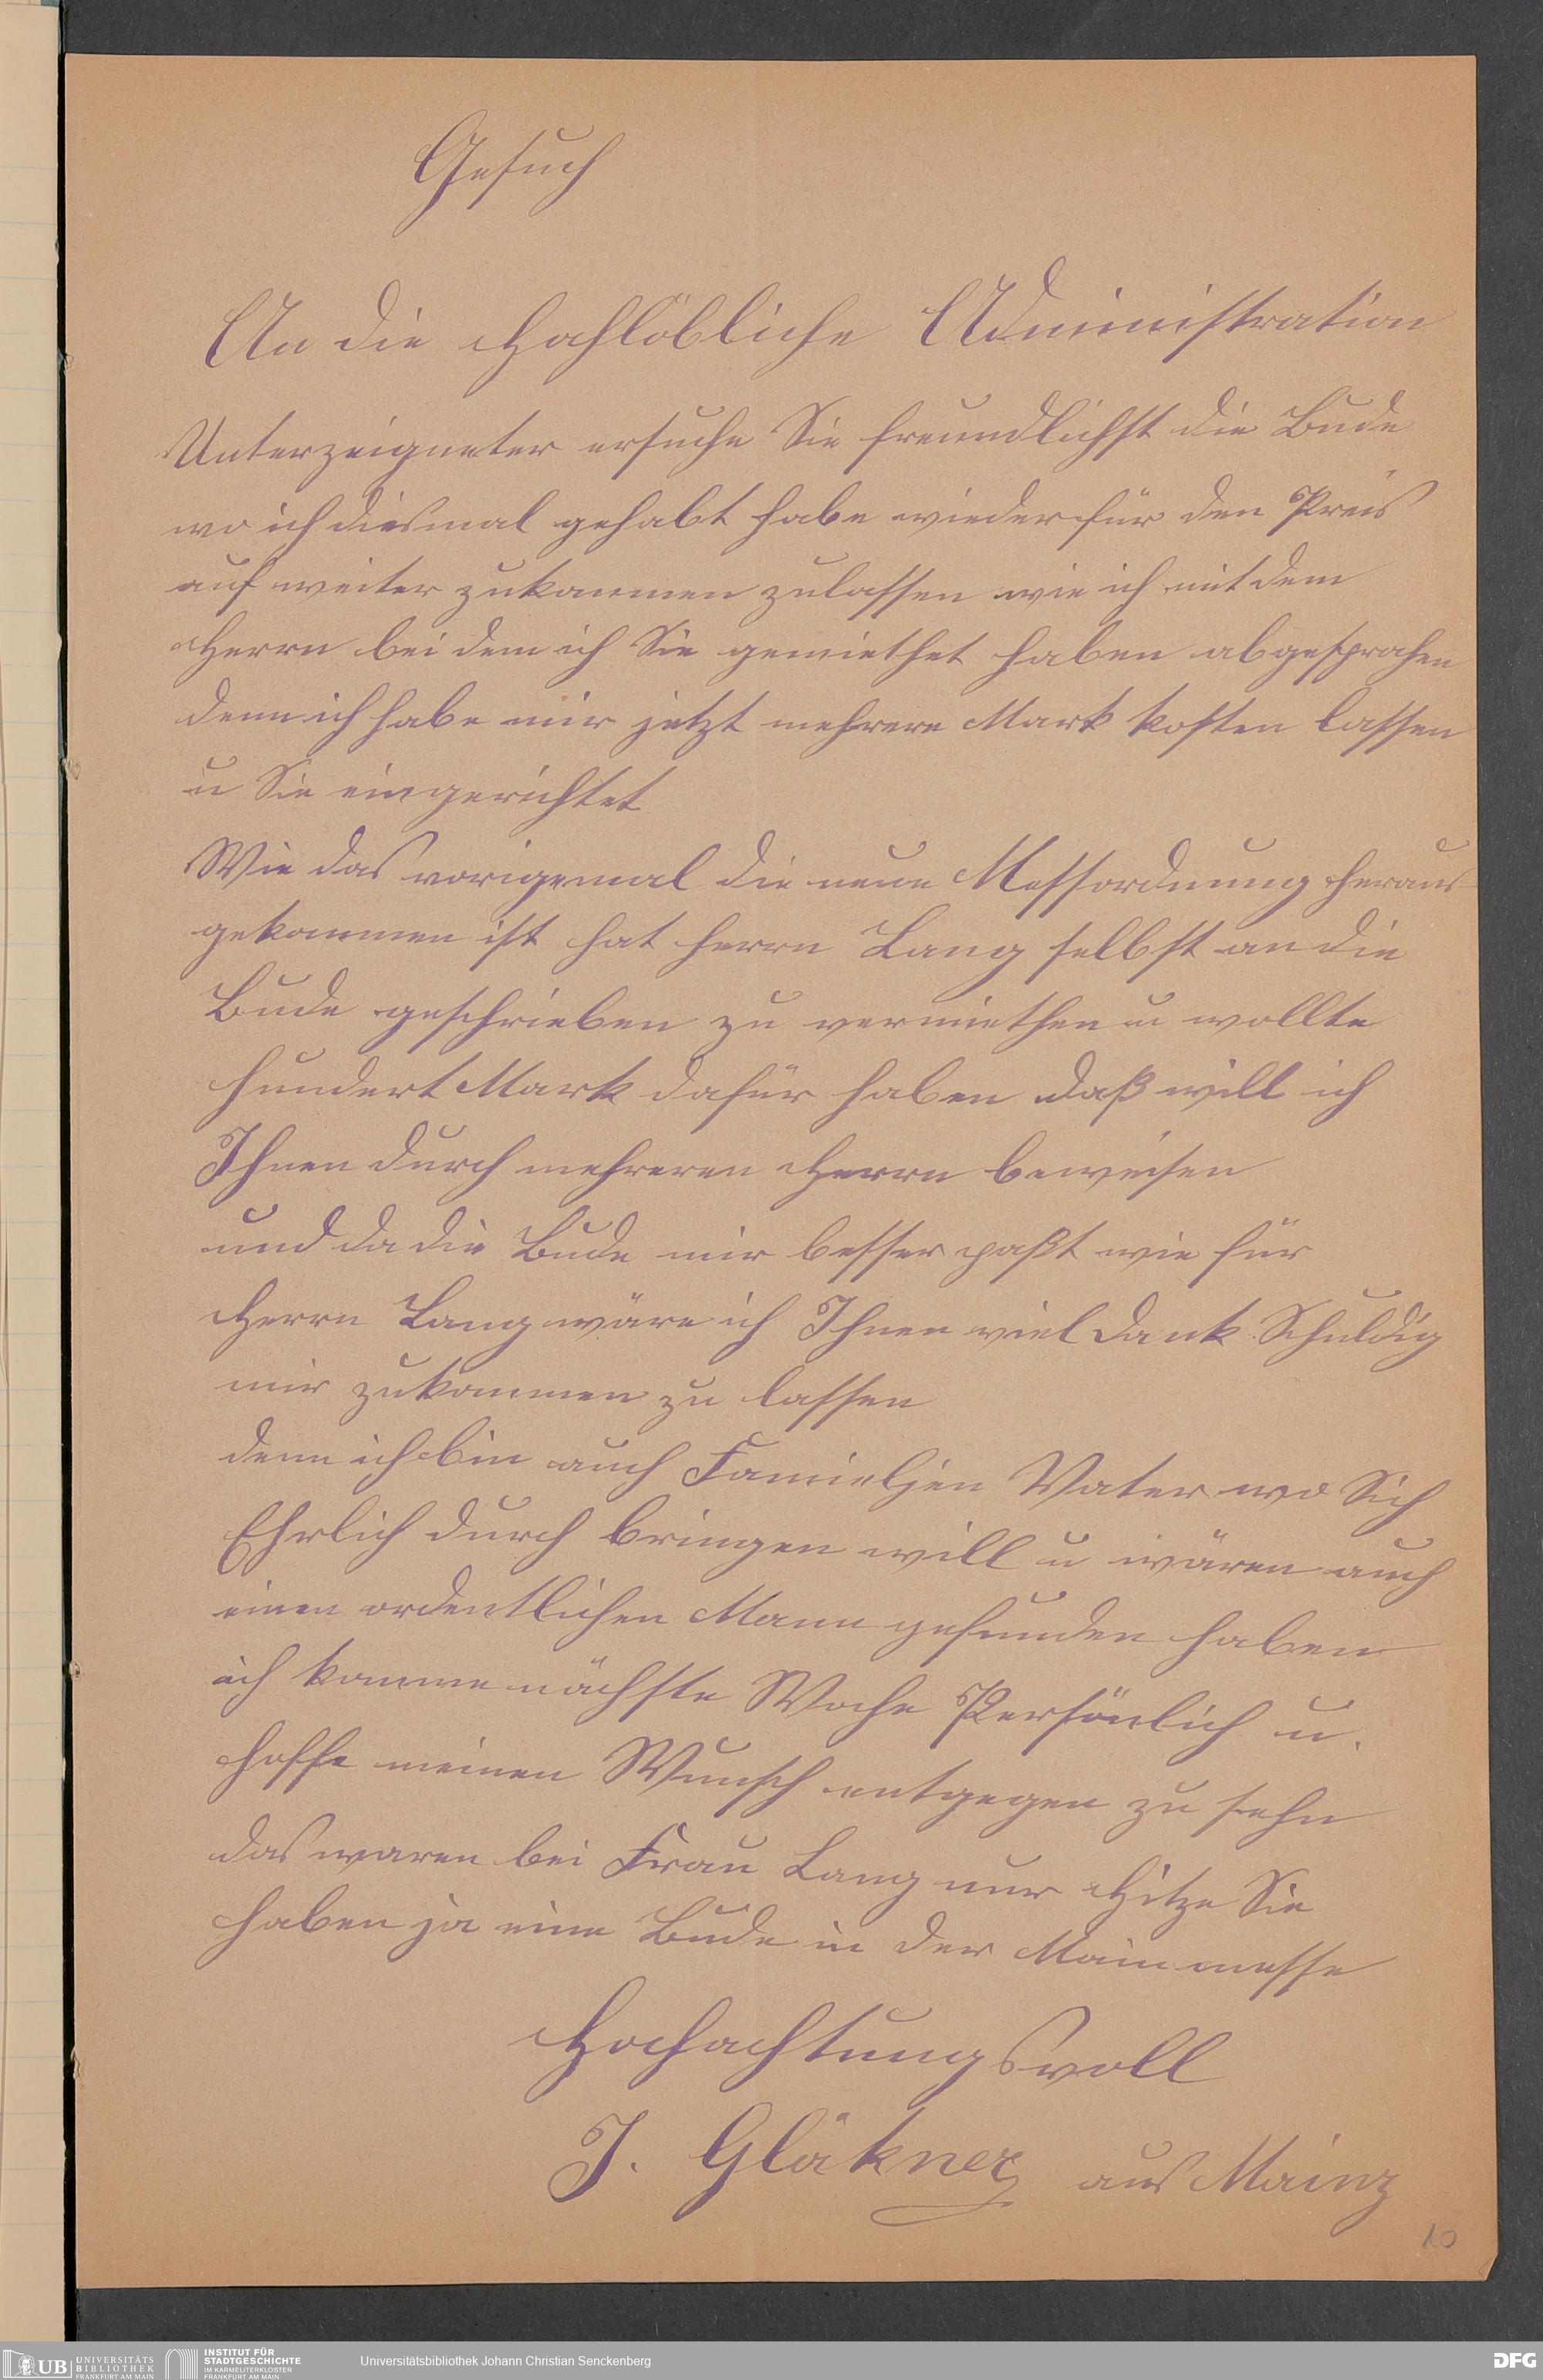 Gesuch
An die Hochlöbliche Administration
Unterzeigneter ersuche Sie freundlichst die Bude
wo ich diesmal gehabt habe wieder für den Preis
auf weiter zukommen zulassen wie ich mit dem
Herrn bei dem ich Sie gemiethet haben abgesprachen
denn ich habe mir jetzt mehrere Mark kosten lassen
u Sie eingerichtet
Wie das vorigemal die neue Messordnung heraus-
gekommen ist hat Herrn Lang selbst an die
Bude geschrieben zu vermiethen u wollte
hundert Mark dafür haben daß will ich
Ihnen durch mehreren Herrn beweisen
und da die Bude mir besser paßt wie für
Herrn Lang wäre ich Ihnen viel Dank Schuldig
mir zukommen zu lassen
denn ich bin auch Familjen Vater wo Sich
Ehrlich durch bringen will u wären auch
einen ordentlichen Mann gefunden haben
ich komme nächste Woche Persönlich u.
hoffe meinen Wunsch entgegen zu sehn
das waren bei Frau Lang nur Hitze Sie
haben ja eine Bude in der Main messe
Hochachtungsvoll
J. Gläkner aus Mainz
10
UB UNIVERSITÄTS
BIBLIOTHEK
FRANKFURT AM MAIN
INSTITUT FÜR
STADTGESCHICHTE
IM KARMELITERKLOSTER
FRANKFURT AM MAIN
Universitätsbibliothek Johann Christian Senckenberg
DFG